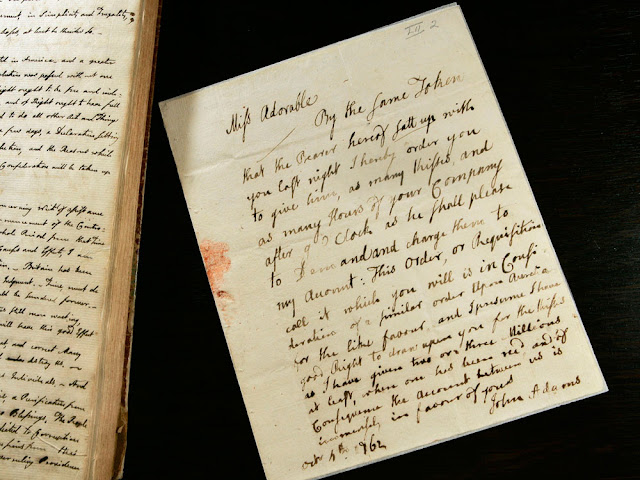 in Simplicity and Frugality,
at least to think so.
in America, and a greater
passed without one
ought to be free and inde-
and of Right ought to have full
to do all other Acts and Things
a few days a Declaration setting
and the Reasons which
Confederation will be taken up
Writs of assistance
Commencement of the Contro-
whole Period from that Time
Causes and Effects, I am
Britain has been
Judgment. Time must
Great Many
Individuals. And
a Purification from
Blessings. The People
to Corruption
Providence
LII 2
Miſs Adorable
By the same Token
that the Bearer hereof satt up with
you last night I hereby order you
to give him, as many Kisses, and
as many Hours of your Company
after 9 O'Clock as he shall please
to Demand and charge them to
my Account: This Order, or Requisition
call it which you will is in Consi-
deration of a similar order Upon Aurelia
for the like favour, and I presume I have
good Right to draw upon you for the Kisses
as I have given two or three Millions
at least, when one has been recd, and of
Consequence the Account between us is
immensely in favour of yours
John Adams
Octr 4th 1762